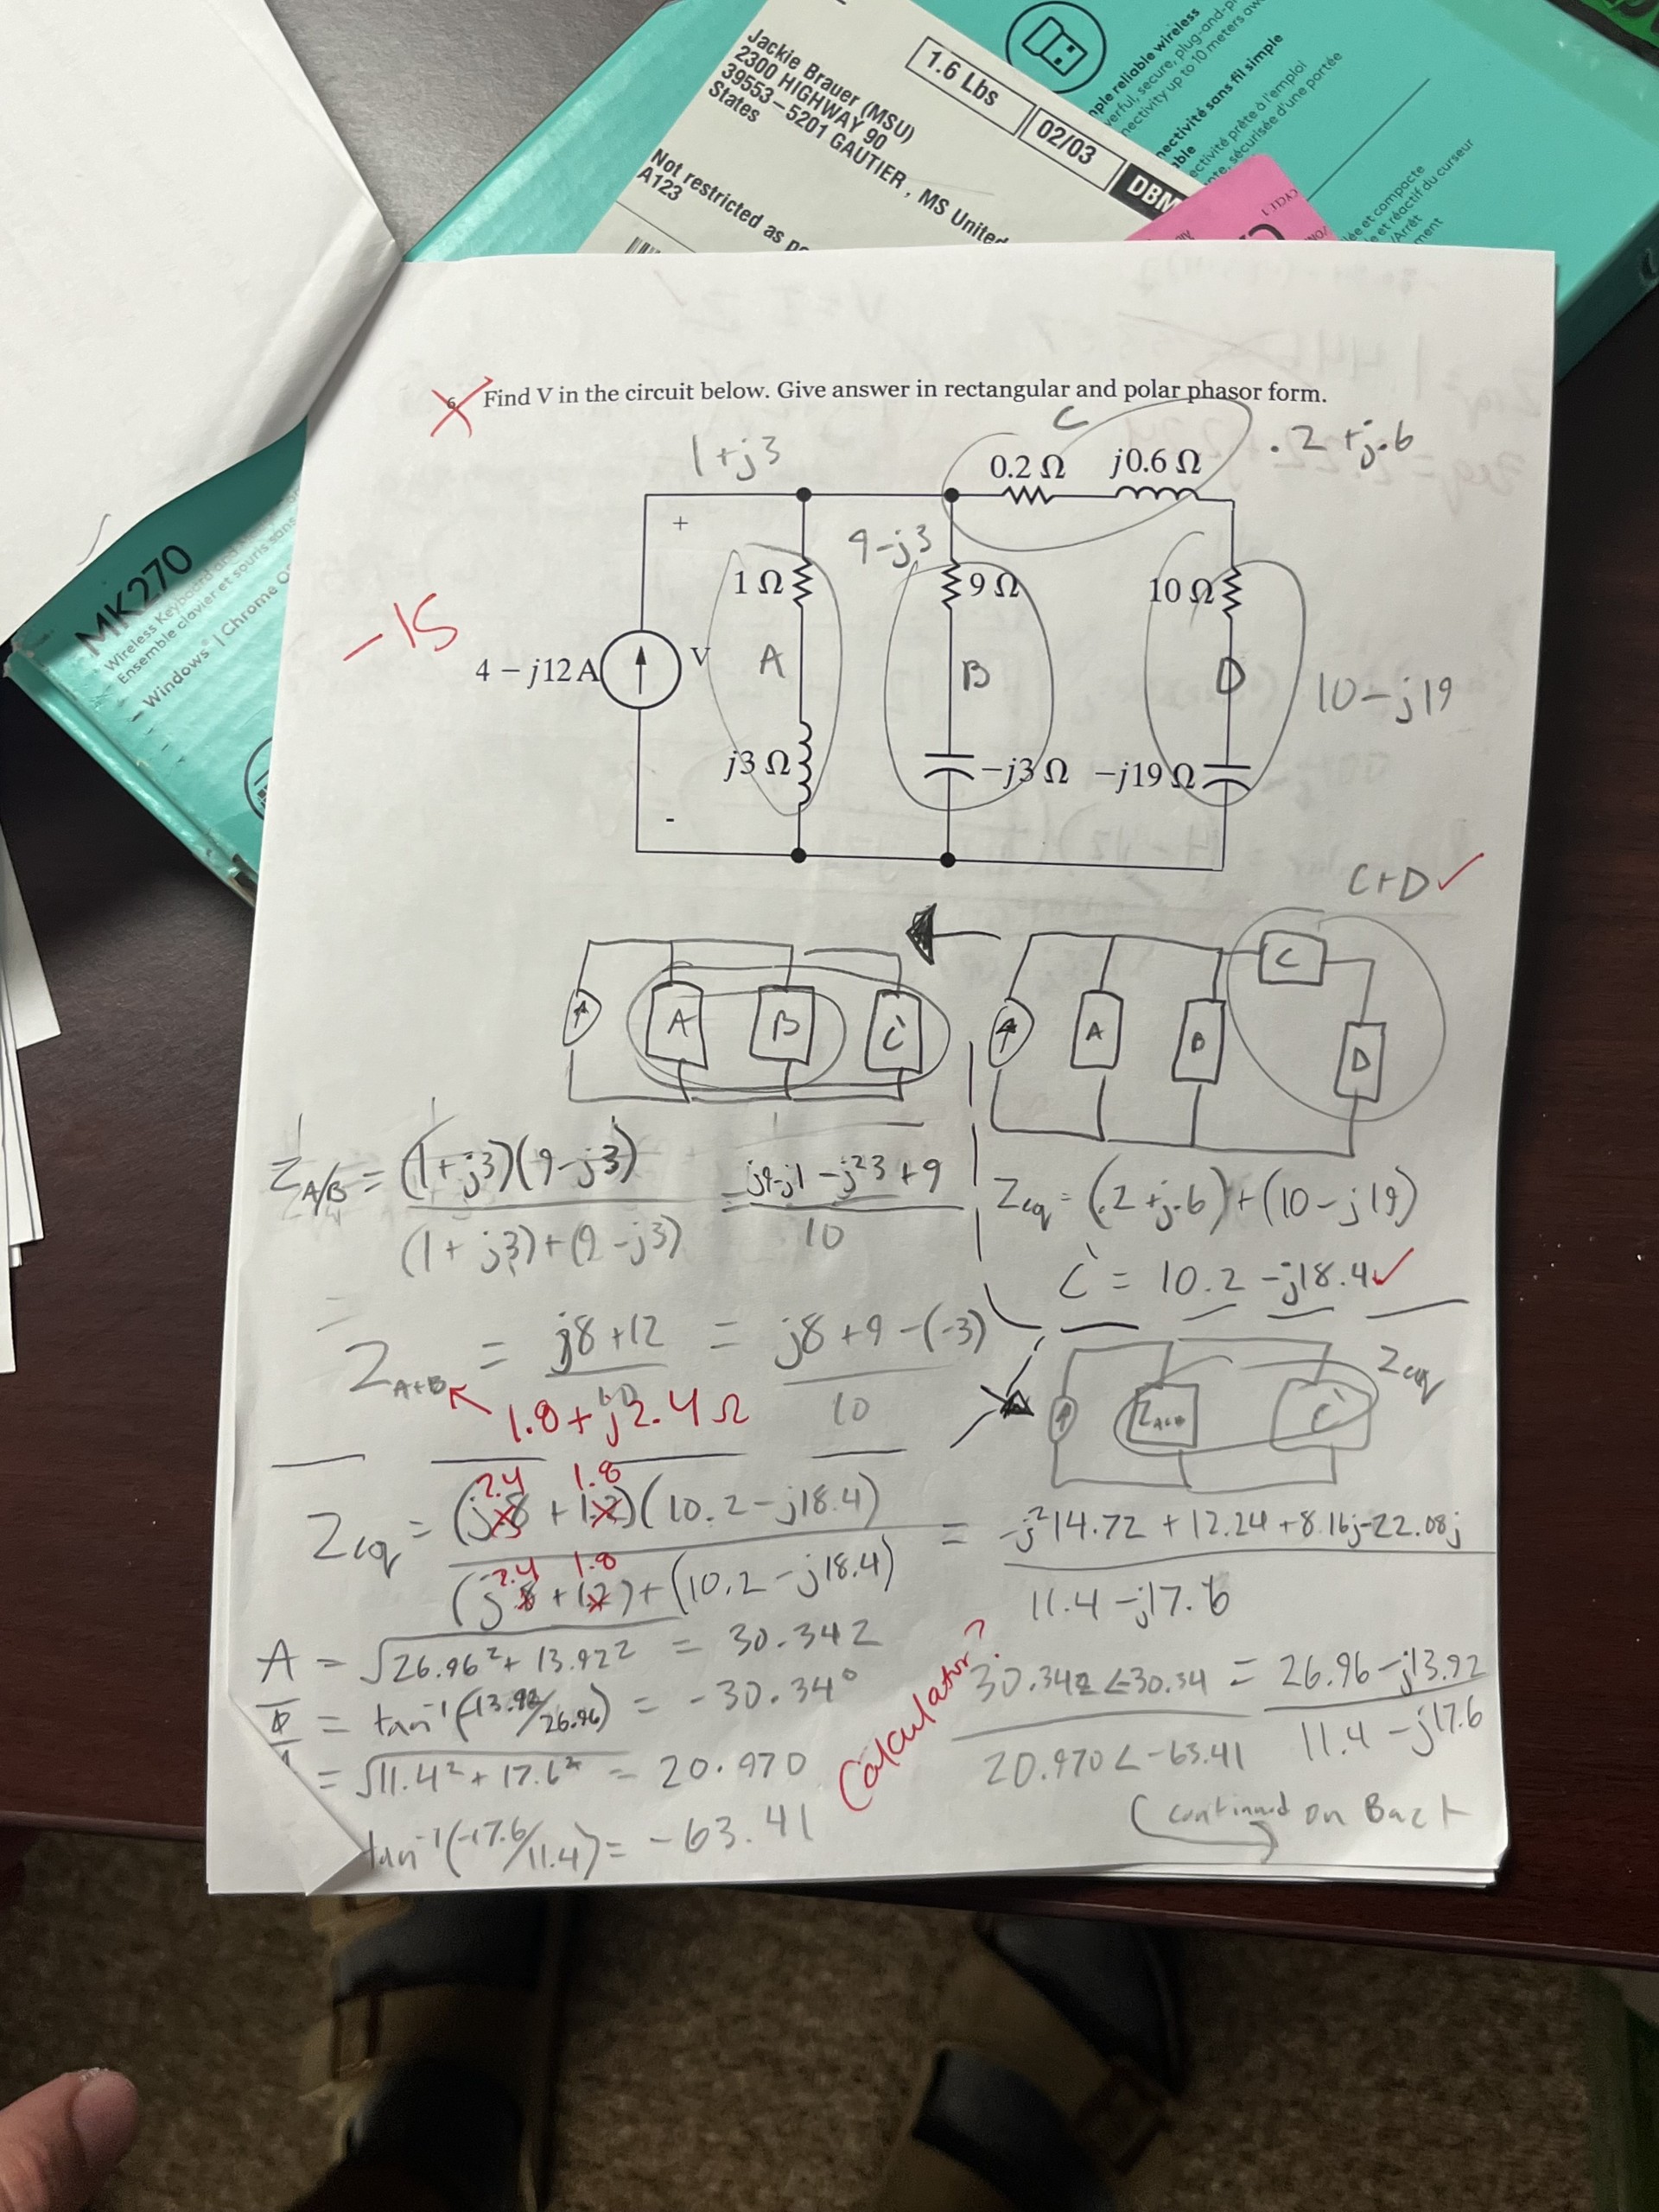 Jackie Brauer (MSU)
2300 HIGHWAY 90
39553-5201 GAUTIER, MS United
States
Not restricted as
A123
1.6 Lbs
02/03
DBM
ple reliable wireless
verful, secure, plug-and-p
nectivity up to 10 meters aw
nectivité sans fil simple
ble
ectivité prête à l'emploi
nte, sécurisée d'une portée
ée et compacte
e et réactif du curseur
/Arrêt
ment
CYCLE 1
MK270
Wireless Keyboard and
Ensemble clavier et souris sans
Windows® | Chrome O
6. Find V in the circuit below. Give answer in rectangular and polar phasor form.
C
1+j3
.2+j.6
0.2 Ω
j0.6 Ω
+
9-j3
1 Ω
9 Ω
10 Ω
-15
4 − j12 A
V
A
B
D
10-j19
j3 Ω
−j3 Ω
−j19 Ω
-
C+D✓
A B C'
A B C D
Z A/B = (1+j3)(9-j3) / (1+j3)+(9-j3) = j9-j1-j²3+9 / 10
Zeq = (.2+j.6)+(10-j19)
C' = 10.2-j18.4✓
Z A+B = j8+12 / 10 = j8+9-(-3) / 10
1.8+j2.4Ω
Z A+B
C'
Zeq
2.4 1.8
Zeq = (j.8+1.2)(10.2-j18.4) / (j.8+1.2)+(10.2-j18.4) = -j²14.72+12.24+8.16j-22.08j / 11.4-j17.6
2.4 1.8
A = √26.96²+13.92² = 30.342
Φ = tan⁻¹(-13.92/26.96) = -30.34°
= √11.4²+17.6² = 20.970
tan⁻¹(-17.6/11.4) = -63.41
Calculator?
30.342∠-30.34 / 20.970∠-63.41 = 26.96-j13.92 / 11.4-j17.6
Continued on Back